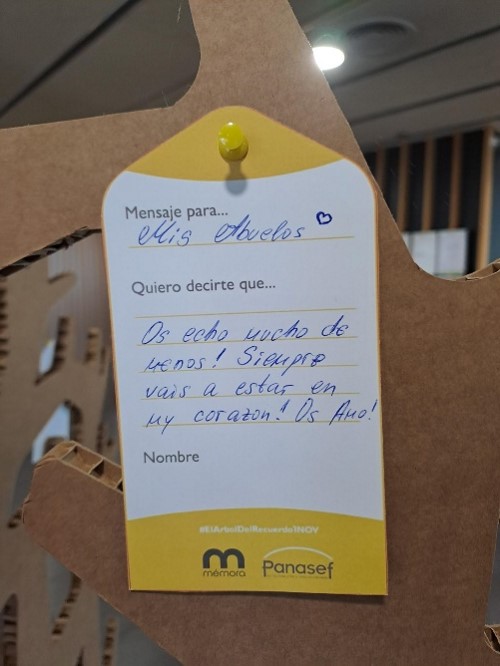 Mensaje para...
Mis Abuelos
Quiero decirte que...
Os echo mucho de
menos! Siempre
vais a estar en
my corazon! Os Amo!
Nombre
#ElArbolDelRecuerdo1NOV
mémora
Panasef